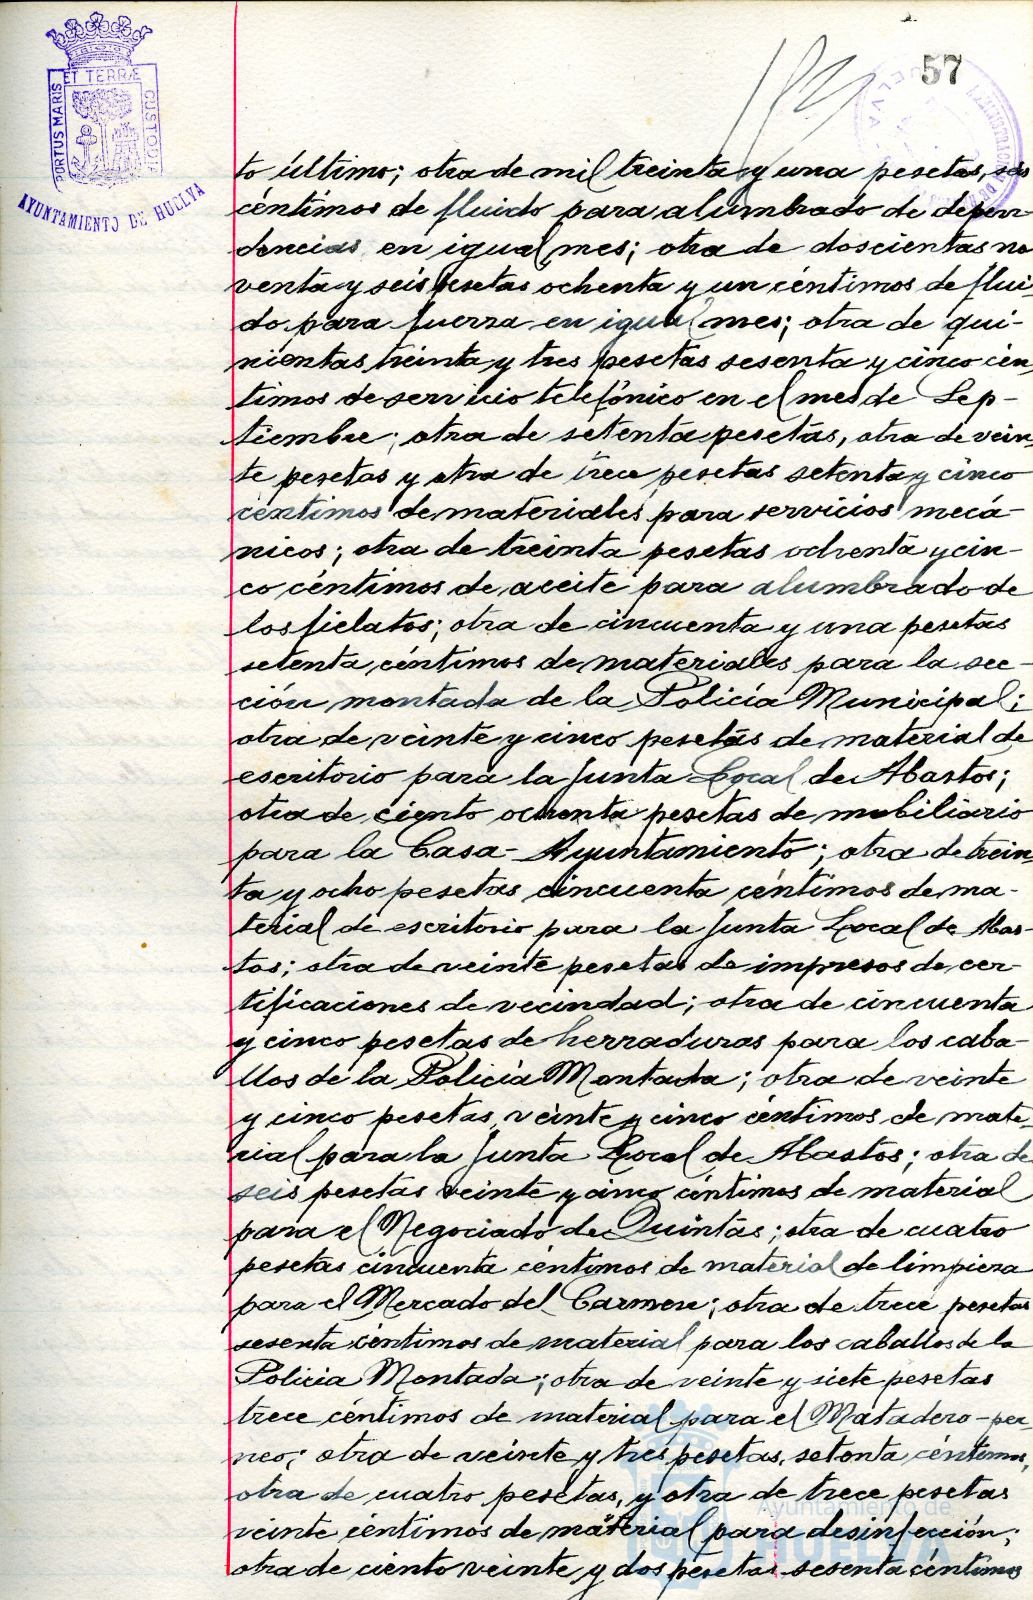 57
PORTUS MARIS ET TERRÆ CUSTODIA
AYUNTAMIENTO DE HUELVA
to último; otra de mil treinta y una pesetas, seis
céntimos de fluido para alumbrado de depen-
dencias en igual mes; otra de doscientas no
venta y seis pesetas ochenta y un céntimos de flui-
do para fuerza en igual mes; otra de qui-
nientas treinta y tres pesetas sesenta y cinco cén
timos de servicio telefónico en el mes de Sep-
tiembre; otra de setenta pesetas, otra de vein-
te pesetas y otra de trece pesetas setenta y cinco
céntimos de materiales para servicios mecá-
nicos; otra de treinta pesetas ochenta y cin-
co céntimos de aceite para alumbrado de
los fielatos; otra de cincuenta y una pesetas
setenta céntimos de materiales para la sec-
ción montada de la Policía Municipal;
otra de veinte y cinco pesetas de material de
escritorio para la Junta Local de Abastos;
otra de ciento ochenta pesetas de mobiliario
para la Casa-Ayuntamiento; otra de trein-
ta y ocho pesetas cincuenta céntimos de ma-
terial de escritorio para la Junta Local de Abas-
tos; otra de veinte pesetas de impresos de cer-
tificaciones de vecindad; otra de cincuenta
y cinco pesetas de herraduras para los caba-
llos de la Policía Montada; otra de veinte
y cinco pesetas, veinte y cinco céntimos de mate-
rial para la Junta Local de Abastos; otra de
seis pesetas veinte y cinco céntimos de material
para el Negociado de Quintas; otra de cuatro
pesetas cincuenta céntimos de material de limpieza
para el Mercado del Carmen; otra de trece pesetas
sesenta céntimos de material para los caballos de la
Policia Montada; otra de veinte y siete pesetas
trece céntimos de material para el Matadero-per-
neo; otra de veinte y tres pesetas, setenta céntimos,
otra de cuatro pesetas, y otra de trece pesetas
veinte céntimos de material para desinfección;
otra de ciento veinte y dos pesetas sesenta céntimos
Ayuntamiento de
HUELVA